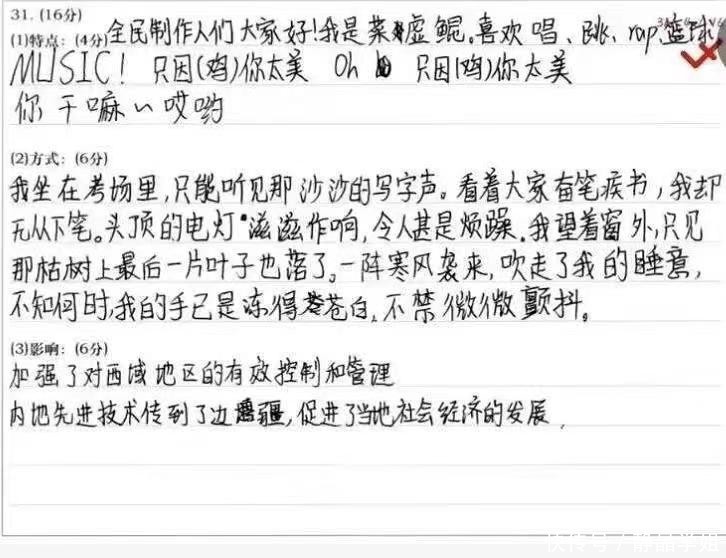 31. (16分)
(1)特点: (4分) 全民制作人们大家好!我是菜虚鲲。喜欢唱、跳、rap、篮球,
MUSIC! 只因(鸡)你太美 Oh 只因(鸡)你太美
你干嘛~哎哟
(2)方式: (6分)
我坐在考场里,只能听见那沙沙的写字声。看着大家奋笔疾书,我却
无从下笔。头顶的电灯滋滋作响,令人甚是烦躁。我望着窗外,只见
那枯树上最后一片叶子也落了。一阵寒风袭来,吹走了我的睡意,
不知何时,我的手已是冻得苍白,不禁微微颤抖。
(3)影响: (6分)
加强了对西域地区的有效控制和管理
内地先进技术传到了边疆,促进了当地社会经济的发展.